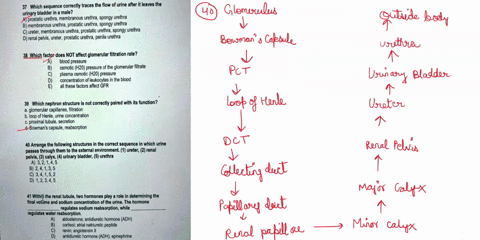 37 Which sequence correctly traces the flow of urine after it leaves the
urinary bladder in a male?
A) prostatic uretra, membranous uretra, spongy uretra
B) membranous uretra, prostatic uretra, spongy uretra
C) ureter, membranous uretra, prostatic uretra, spongy uretra
D) renal pelvis, ureter, prostatic uretra, penile uretra
38 Which factor does NOT affect glomerular filtration rate?
A) blood pressure
B) osmotic (H20) pressure of the glomerular filtrate
C) plasma osmotic (H20) pressure
D) concentration of leukocytes in the blood
E) all these factors affect GFR
39 Which nephron structure is not correctly paired with its function?
a. glomerular capillaries, filtration
b. loop of Henle, urine concentration
c. proximal tubule, secretion
d. Bowman's capsule, reabsorption
40 Arrange the following structures in the correct sequence in which urine
passes through them to the external environment. (1) ureter, (2) renal
pelvis, (3) calyx, (4) urinary bladder, (5) urethra
A) 3, 2, 1, 4, 5
B) 2, 4, 1, 3, 5
C) 3, 4, 1, 5, 2
D) 1, 2, 3, 4, 5
41 Within the renal tubule, two hormones play a role in determining the
final volume and sodium concentration of the urine. The hormone
regulates sodium reabsorption, while
regulates water reabsorption.
A) aldosterone, antidiuretic hormone (ADH)
B) cortisol, atrial natriuretic peptide
C) renin, angiotensin II
D) antidiuretic hormone (ADH), epinephrine
40 Glomerulus
Bowman's Capsule
PCT
Loop of Henle
DCT
Collecting duct
Papillary duct
Renal papillae
Minor calyx
Major Calyx
Renal Pelvis
Ureter
Urinary Bladder
Urethra
Outside body